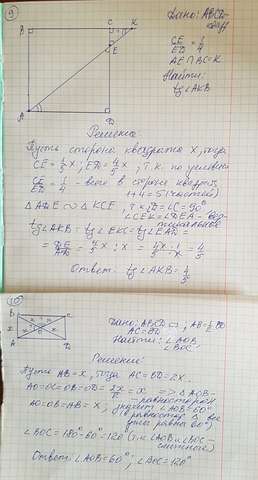 9
Дано: ABCD-
квадр
CE/ED = 1/4
AE∩BC=K
Найти:
tg∠AKB
B C K
E
A D
Решение:
Пусть сторона квадрата x, тогда
CE=1/5x; ED=4/5x, т.к. по условию
CE/ED=1/4 - всего в стороне квадрата
1+4=5(частей)
△ADE∾△KCE, т.к. ∠D=∠C=90°
∠CEK=∠DEA-вер-
тикальные
tg∠AKB=tg∠EKC=tg∠EAD=
=DE/AD=4/5x:x=4/5·x·1/x=4/5
Ответ: tg∠AKB=4/5
10
B C
x
A D
Дано: ABCD ▭; AB=1/2BD
AC=BD
Найти: ∠AOB
∠BOC
Решение:
Пусть AB=x, тогда AC=BD=2x.
AO=OC=OB=OD=2x/2=x => △AOB-
равносторон
AO=OB=AB=x, значит ∠AOB=60°
(в равносторон △ все
углы равны 60°)
∠BOC=180°-60°=120° (т.к ∠AOB и ∠BOC-
смежные)
Ответ: ∠AOB=60°; ∠BOC=120°